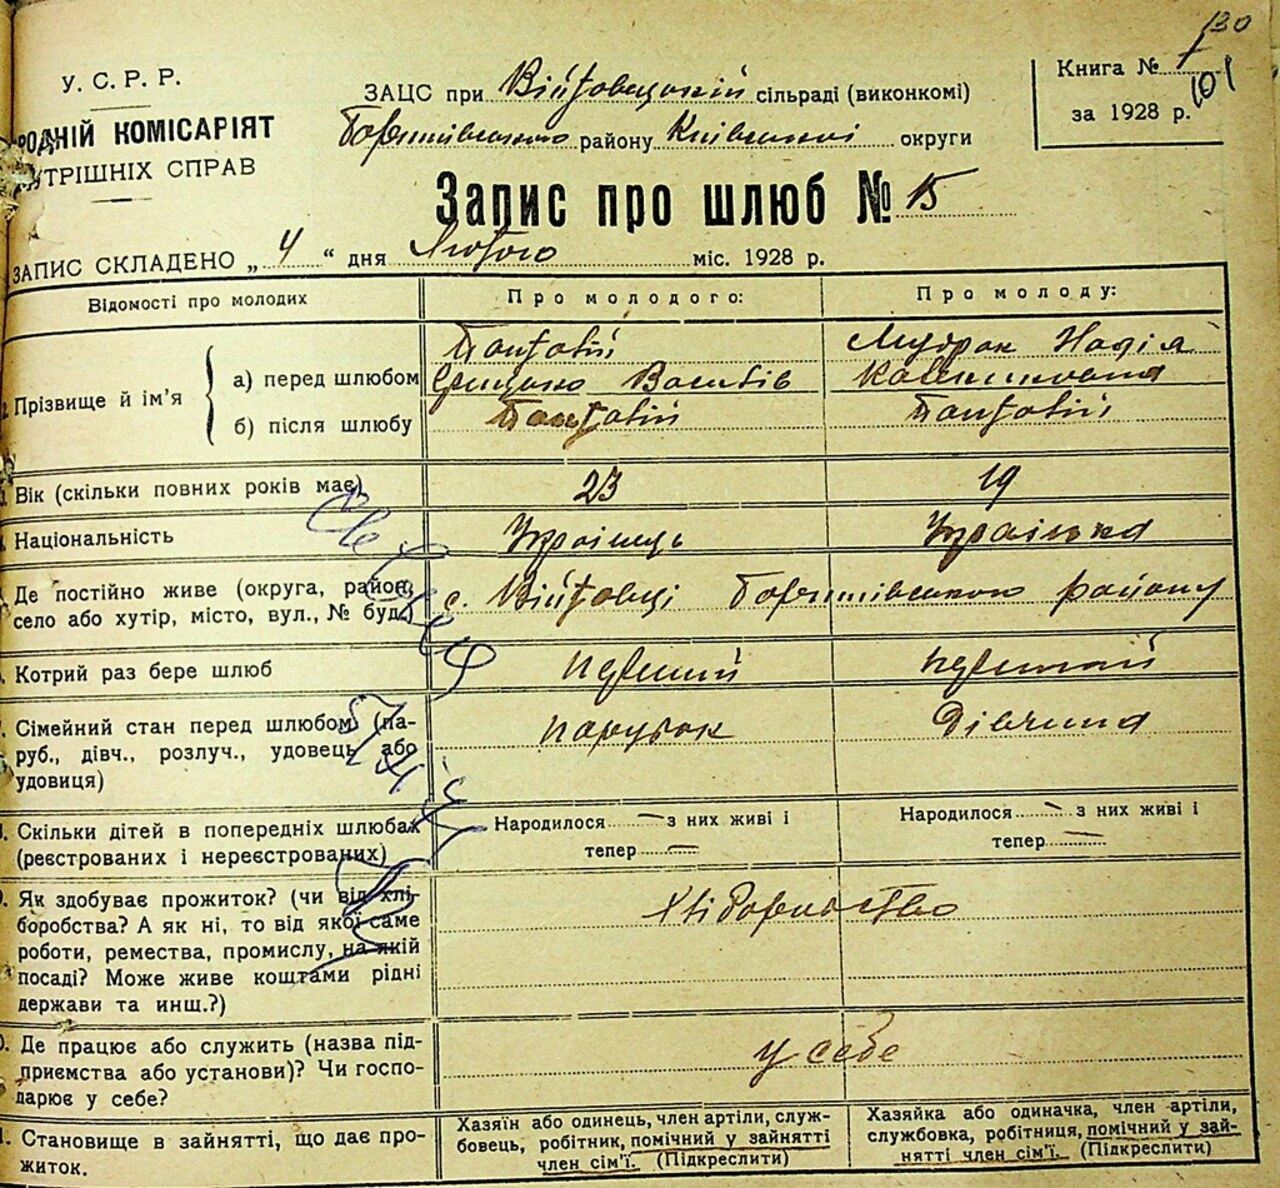 130
У. С. Р. Р.
РОДНІЙ КОМІСАРІЯТ
УТРІШНІХ СПРАВ
ЗАЦС при Війтовецькій сільраді (виконкомі)
Бориспільського району Київської округи
Книга № 1
за 1928 р.
101
Запис про шлюб № 15
ЗАПИС СКЛАДЕНО „ 4 “ дня Лютого міс. 1928 р.
Відомості про молодих
Про молодого:
Про молоду:
Прізвище й ім'я
а) перед шлюбом
б) після шлюбу
Васильів
Надія
Вік (скільки повних років має)
23
19
Національність
Українець
Українка
Де постійно живе (округа, район, село або хутір, місто, вул., № буд.)
с. Війтовці Бориспільського району
Котрий раз бере шлюб
первий
первий
Сімейний стан перед шлюбом (па-
руб., дівч., розлуч., удовець або
удовиця)
парубок
Дівчина
Скільки дітей в попередніх шлюбах
(реєстрованих і нереєстрованих)
Народилося — з них живі і
тепер —
Народилося — з них живі і
тепер —
Як здобуває прожиток? (чи від хлі-
боробства? А як ні, то від якої саме
роботи, ремества, промислу, на якій
посаді? Може живе коштами рідні
держави та инш.?)
Хліборобство
Де працює або служить (назва під-
приємства або установи)? Чи госпо-
дарює у себе?
у себе
Становище в зайнятті, що дає про-
житок.
Хазяїн або одинець, член артіли, служ-
бовець, робітник, помічний у зайнятті
член сім'ї. (Підкреслити)
Хазяйка або одиначка, член артіли,
службовка, робітниця, помічний у зай-
нятті член сім'ї. (Підкреслити)